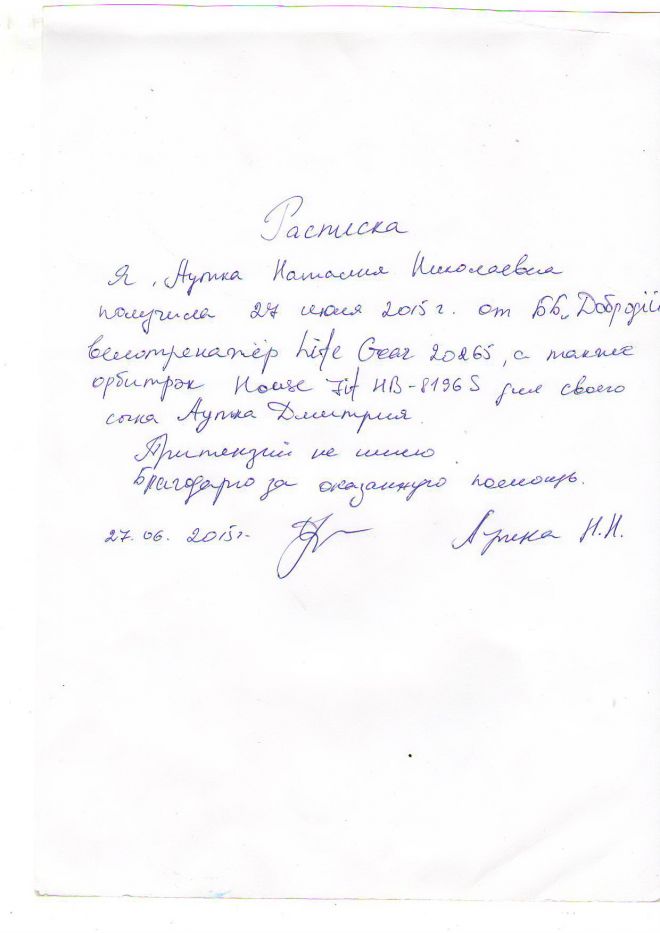 Расписка
Я, Аупка Наталия Николаевна
получила 27 июня 2015 г. от ББ „Добродій
велотренажёр Life Gear 20265, а также
орбитрэк House Fit HB-8196 S для своего
сына Аупка Дмитрия.
Притензий не имею.
Благодарю за оказанную помощь.
27.06. 2015 г. Аупка Н.Н.